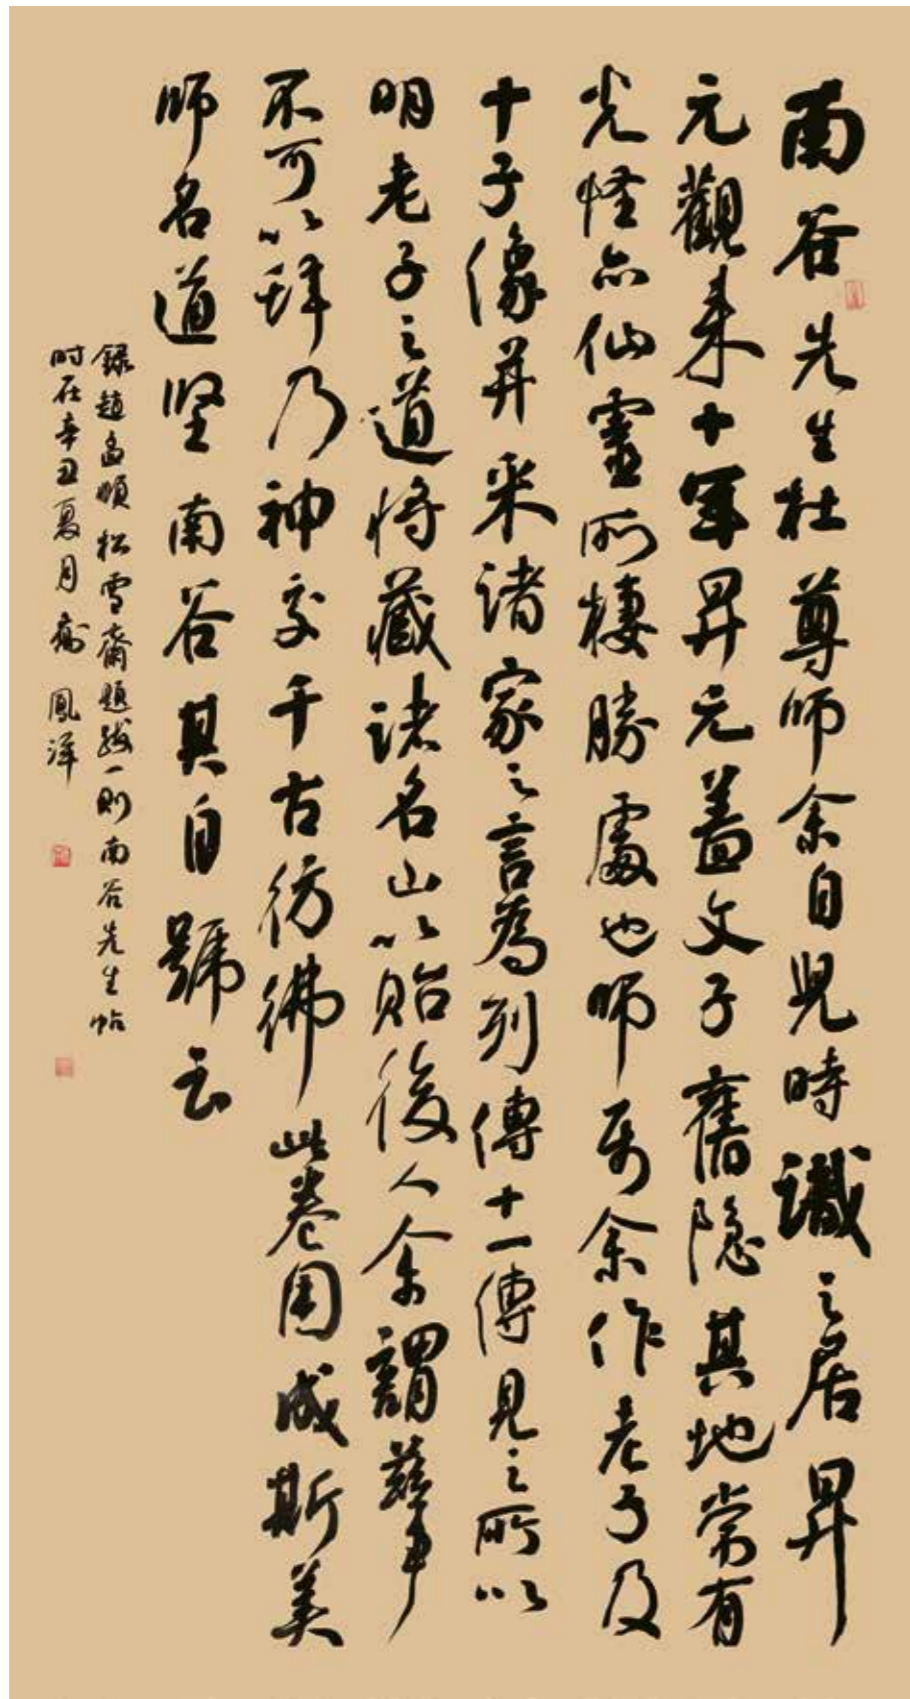 南谷先生杜尊師余自兒時識之居昇
元觀来十年昇元蓋文子舊隐其地常有
光怪亦仙靈所棲勝處也師属余作老子及
十子像并采諸家之言為列傳十一傳見之所以
明老子之道将藏諸名山以貽後人余謂茲事
不可以辞乃神交千古彷彿此卷用成斯美
師名道坚南谷其自號云
録趙孟頫松雪齋題跋一則南谷先生帖
时在辛丑夏月 鳳洋